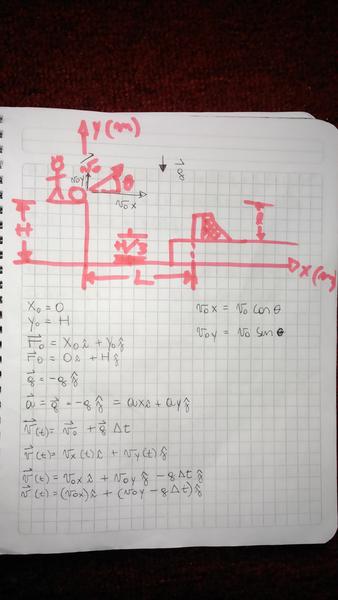 Y(m)
v⃗o
voy
θ
vox
g⃗
H
H/3
L
X(m)
X₀ = 0
Y₀ = H
r⃗₀ = X₀î + Y₀ĵ
r⃗₀ = 0î + Hĵ
g⃗ = -gĵ
a⃗ = g⃗ = -gĵ = axî + ayĵ
v⃗(t) = v⃗₀ + g⃗ Δt
v⃗(t) = vx(t)î + vy(t)ĵ
v⃗(t) = v₀xî + v₀yĵ - gΔtĵ
v⃗(t) = (v₀x)î + (v₀y - gΔt)ĵ
v₀x = v₀ cosθ
v₀y = v₀ senθ